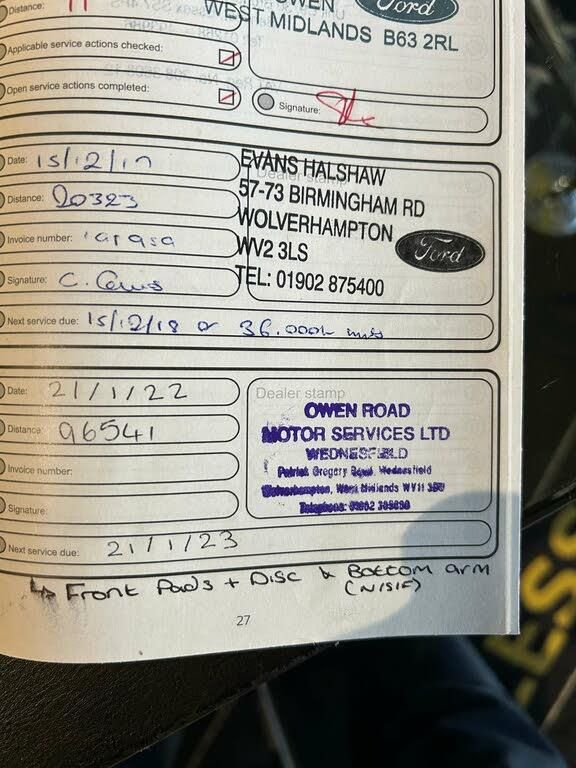 Distance:
OWEN
Ford
WEST MIDLANDS B63 2RL
Applicable service actions checked:
Open service actions completed:
Signature:
Date: 15/12/17
EVANS HALSHAW
Dealer stamp
57-73 BIRMINGHAM RD
Distance: 20323
WOLVERHAMPTON
Ford
Invoice number:
WV2 3LS
Signature: C. Lewis
TEL: 01902 875400
Next service due: 15/12/18 or 36.000k mls
Date: 21/1/22
Dealer stamp
OWEN ROAD
Distance: 96541
MOTOR SERVICES LTD
WEDNESFIELD
Invoice number:
Patrick Gregory Road, Wednesfield
Wolverhampton, West Midlands WV11
Signature:
Telephone: 01902
Next service due: 21/1/23
↳ Front Pads + Disc & Bottom arm
(N/S/F)
27